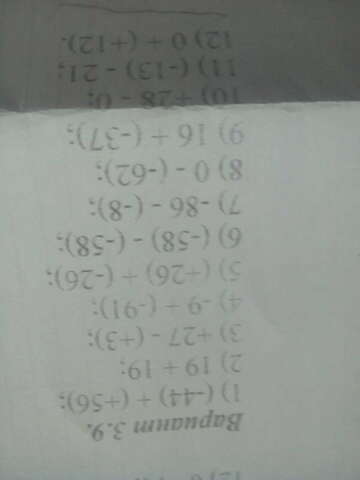 Вариант 3.9.
1) (-44) + (+56);
2) 19 + 19;
3) +27 - (+3);
4) -9 + (-91);
5) (+26) + (-26);
6) (-58) - (-58);
7) -86 - (-8);
8) 0 - (-62);
9) 16 + (-37);
10) +28 - 0;
11) (-13) - 21;
12) 0 + (+12).